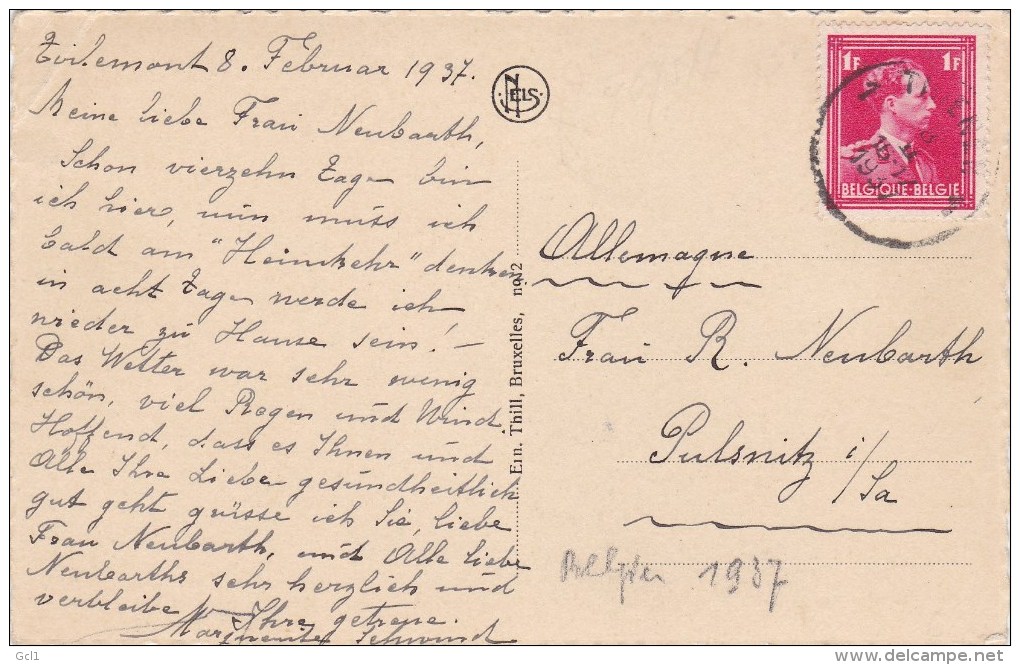 Tirlemont 8. Februar 1937.
Meine liebe Frau Neubarth,
Schon vierzehn Tage bin
ich hier, nun muss ich
bald am "Heimkehr" denken
in acht Tage werde ich
wieder zu Hause sein! —
Das Wetter war sehr wenig
schön, viel Regen und Wind.
Hoffend, dass es Ihnen und
Alle Ihre Lieben gesundheitlich
gut geht grüsse ich Sie, liebe
Frau Neubarth, und Alle liebe
Neubarths sehr herzlich und
verbleibe Ihre getreue
Marguerite Schwind
NELS
Ein. Thill, Bruxelles, no 2
1F 1F
BELGIQUE-BELGIE
1937
Allemagne
Frau R. Neubarth
Pulsnitz i/Sa
Belgien 1937
Gcl1
delcampe.net